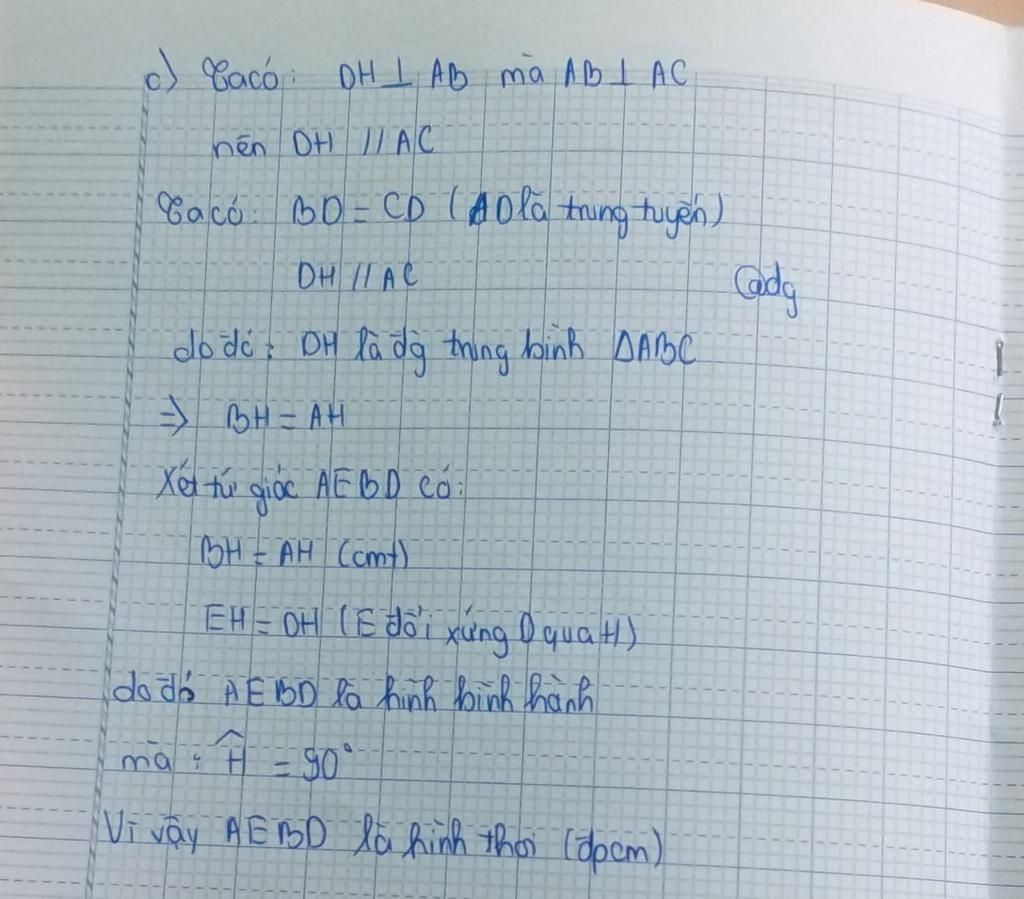 c) Ta có: DH ⊥ AB mà AB ⊥ AC
nên DH // AC
Ta có: BD = CD (AD là trung tuyến)
DH // AC
@dg
do đó: DH là đg trung bình ΔABC
=> BH = AH
Xét tứ giác AEBD có:
BH = AH (cmt)
EH = DH (E đối xứng D qua H)
do đó AEBD là hình bình hành
mà: Ĥ = 90°
Vì vậy AEBD là hình thoi (đpcm)